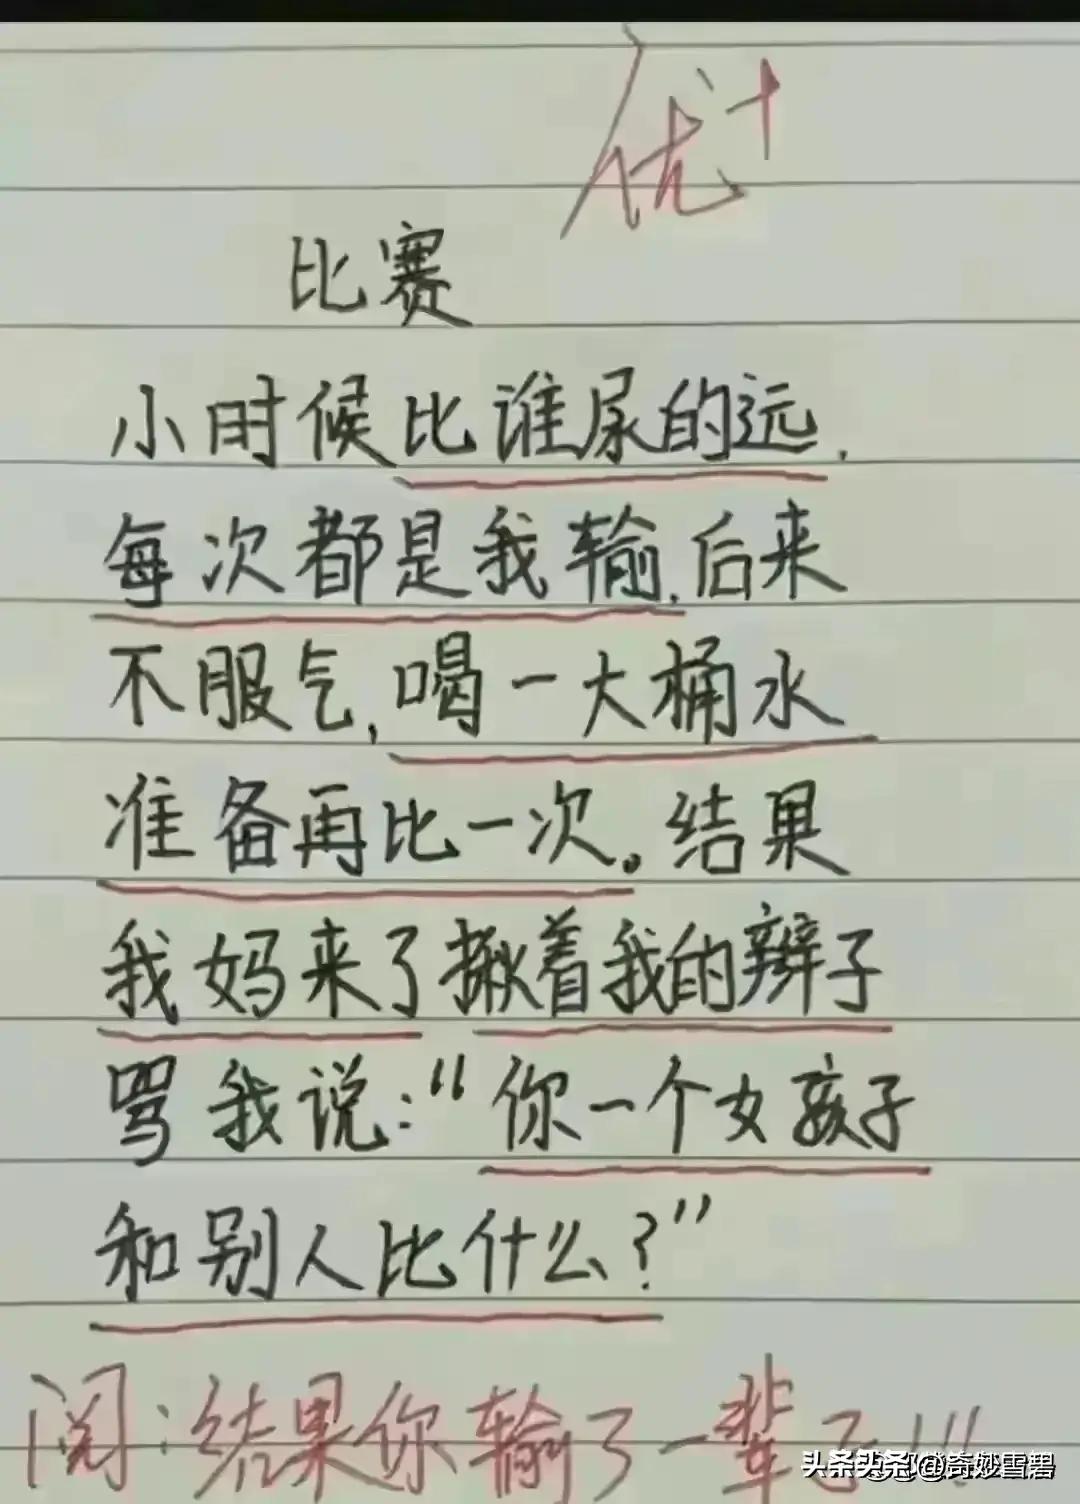 优+
比赛
小时候比谁尿的远.
每次都是我输.后来
不服气,喝一大桶水
准备再比一次。结果
我妈来了揪着我的辫子
骂我说:“你一个女孩子
和别人比什么?”
阅:结果你输了一辈子!!!
头条 @奇妙雪碧